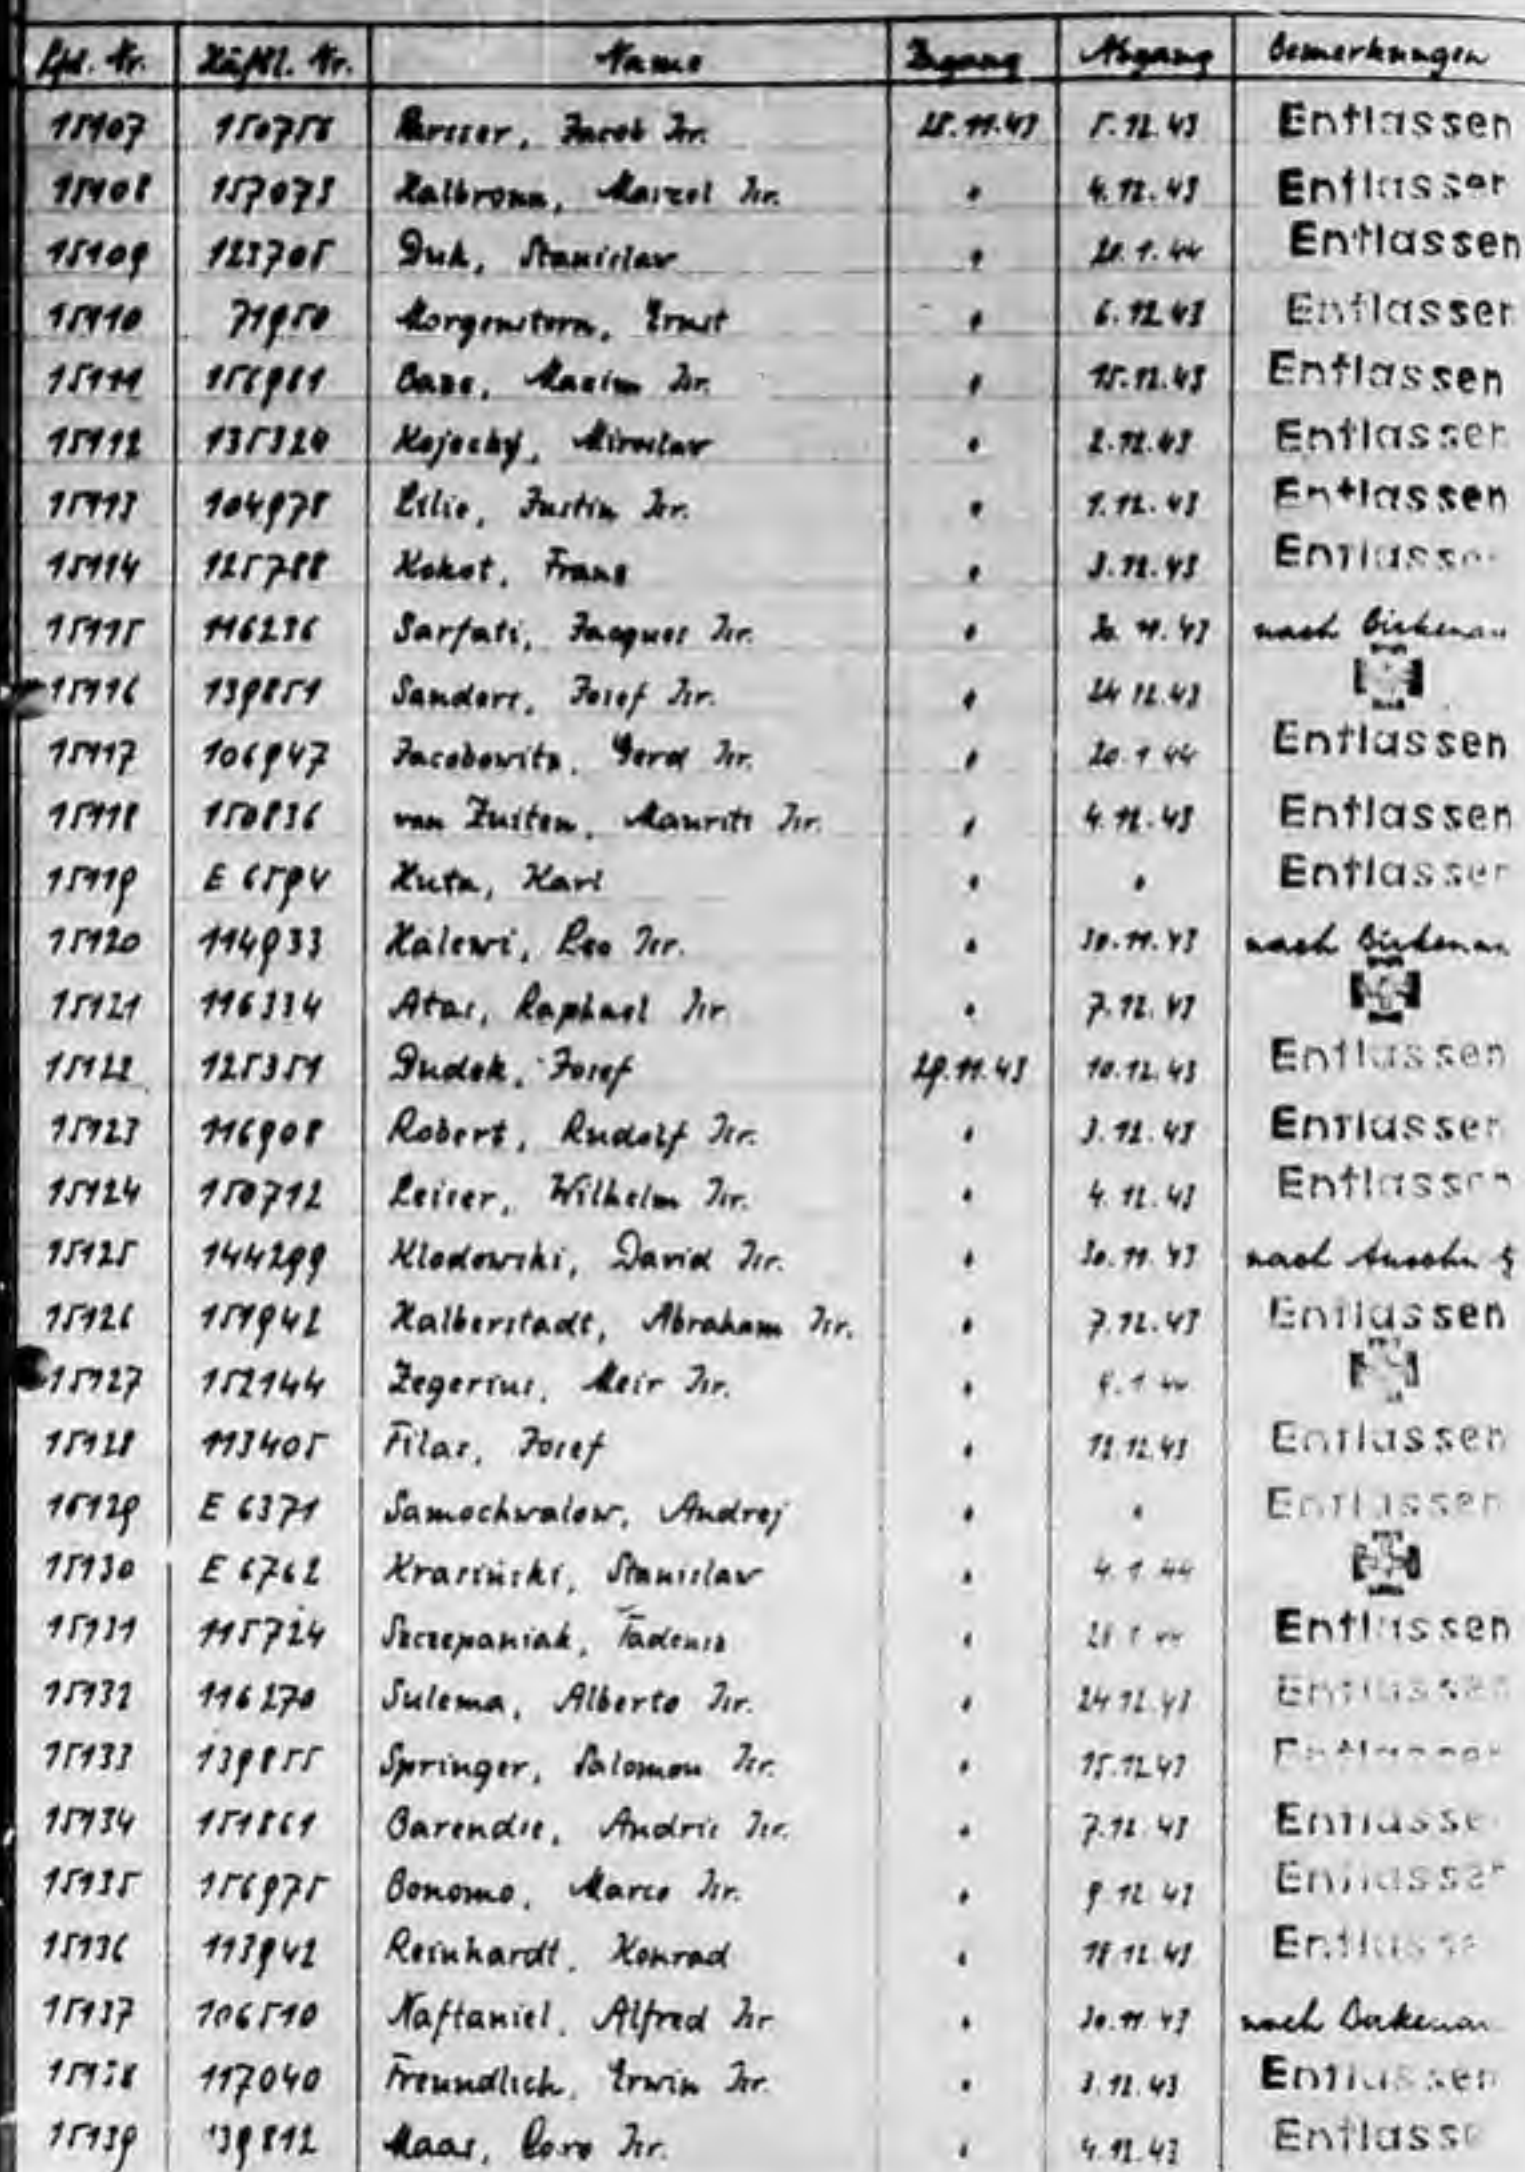 Lfd. Nr. Häftl. Nr. Name Zugang Abgang Bemerkungen
15107 150756 Jacob Isr. 28.11.43 5.12.43 Entlassen
15108 157073 Halbronn, Marcel Isr. " 4.12.43 Entlassen
15109 123705 Duk, Stanislaw " 20.1.44 Entlassen
15110 71950 Morgenstern, Ernst " 6.12.43 Entlassen
15111 156981 Baze, Maxim Isr. " 15.12.43 Entlassen
15112 135324 Miroslav " 2.12.43 Entlassen
15113 104978 Lilie, Justin Isr. " 1.12.43 Entlassen
15114 125788 Kokot, Franz " 3.12.43 Entlassen
15115 116236 Sarfati, Jacques Isr. " 30.11.43 nach Birkenau
15116 139851 Sanders, Josef Isr. " 24.12.43
15117 106947 Jacobowitz, Gerd Isr. " 20.1.44 Entlassen
15118 150836 van Zuiten, Maurits Isr. " 4.12.43 Entlassen
15119 E 6594 Huta, Karl " " Entlassen
15120 114933 Halewi, Leo Isr. " 30.11.43 nach Birkenau
15121 116334 Atas, Raphael Isr. " 7.12.43
15122 125351 Dudek, Josef 29.11.43 10.12.43 Entlassen
15123 116908 Robert, Rudolf Isr. " 3.12.43 Entlassen
15124 150712 Leiser, Wilhelm Isr. " 4.12.43 Entlassen
15125 144299 Klodowski, David Isr. " 30.11.43 nach
15126 151942 Halberstadt, Abraham Isr. " 7.12.43 Entlassen
15127 152144 Zegerius, Meir Isr. "
15128 113405 Filas, Josef " 12.12.43 Entlassen
15129 E 6371 Samochwalow, Andrej " " Entlassen
15130 E 6762 Krasiński, Stanislaw " 4.1.44
15131 115724 Szczepaniak, Tadeusz " Entlassen
15132 116270 Sulema, Alberto Isr. " 24.12.43 Entlassen
15133 139855 Springer, Salomon Isr. " 15.12.43 Entlassen
15134 151861 Barendse, Andries Isr. " 7.12.43 Entlassen
15135 156975 Bonomo, Marco Isr. " 9.12.43 Entlassen
15136 113942 Reinhardt, Konrad " 18.12.43 Entlassen
15137 106510 Naftaniel, Alfred Isr. " 30.11.43 nach Birkenau
15138 117040 Freundlich, Erwin Isr. " 3.12.43 Entlassen
15139 139812 Maas, Isr. " 4.12.43 Entlassen